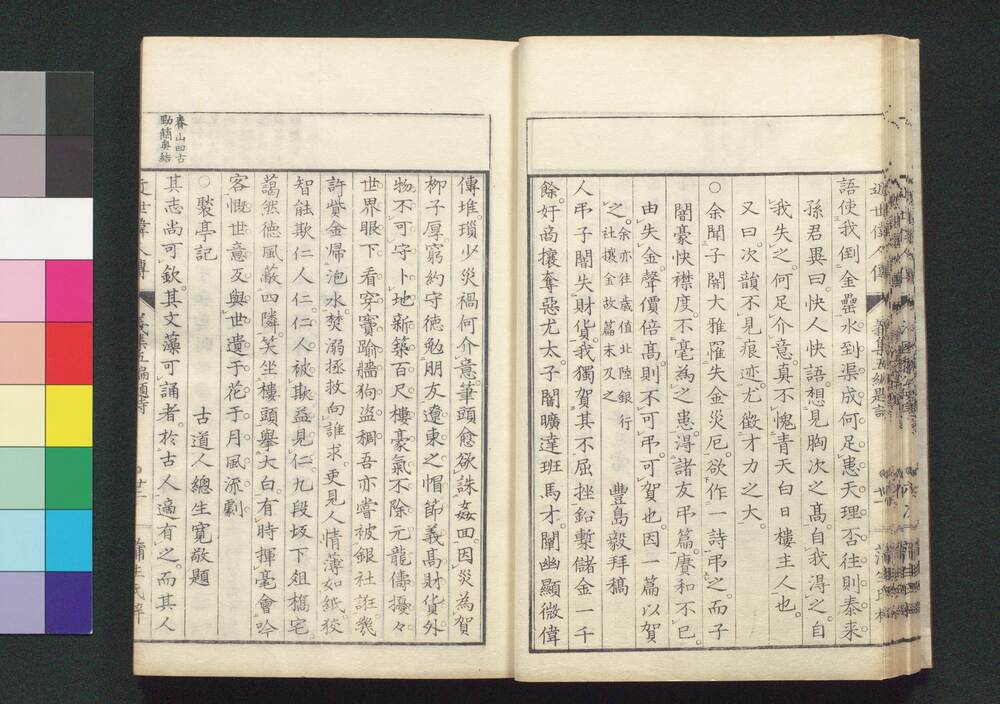 語使我倒金罍水到渠成何足患天理否往則泰来
孫君異曰快人快語想見胸次之高自我得之自
我失之何足介意真不愧青天白日樓主人也
又曰次韻不見痕迹尤徵才力之大
○余聞子闇大雅罹失金災厄欲作一詩弔之而子
闇豪快襟度不毫為之患得諸友弔篇賡和不已
由失金聲價倍髙則不可弔可賀也因一篇以賀
之余亦往歳值北陸銀行
社攘金故篇末及之
豐島毅拜稿
人弔子闇失財貨我獨賀其不屈挫鉛槧儲金一千
餘奸商攘奪惡尤太子闇曠達班馬才闡幽顯微偉
傳堆瑣少災禍何介意筆頭愈欲誅姦回因災為賀
柳子厚窮約守徳勉朋友遼東之帽節義髙財貨外
物不可守卜地新築百尺樓豪氣不除元龍儔擾々
世界眼下看穿竇踰牆狗盗稠吾亦嘗被銀社誑幾
許貲金帰泡水焚溺拯救向誰求更見人情薄如紙狡
智能欺仁人仁仁人被欺益見仁九段坂下爼橋宅
藹然德風蔽四隣笑坐樓頭擧大白有時揮毫會吟
客慨世意又與世遺于花于月風流劇
○褧亭記
古道人總生寛敬題
其志尚可欽其文藻可誦者於古人適有之而其人
春山曰古
勁簡奥結
近世偉人傳
蒲生氏梓